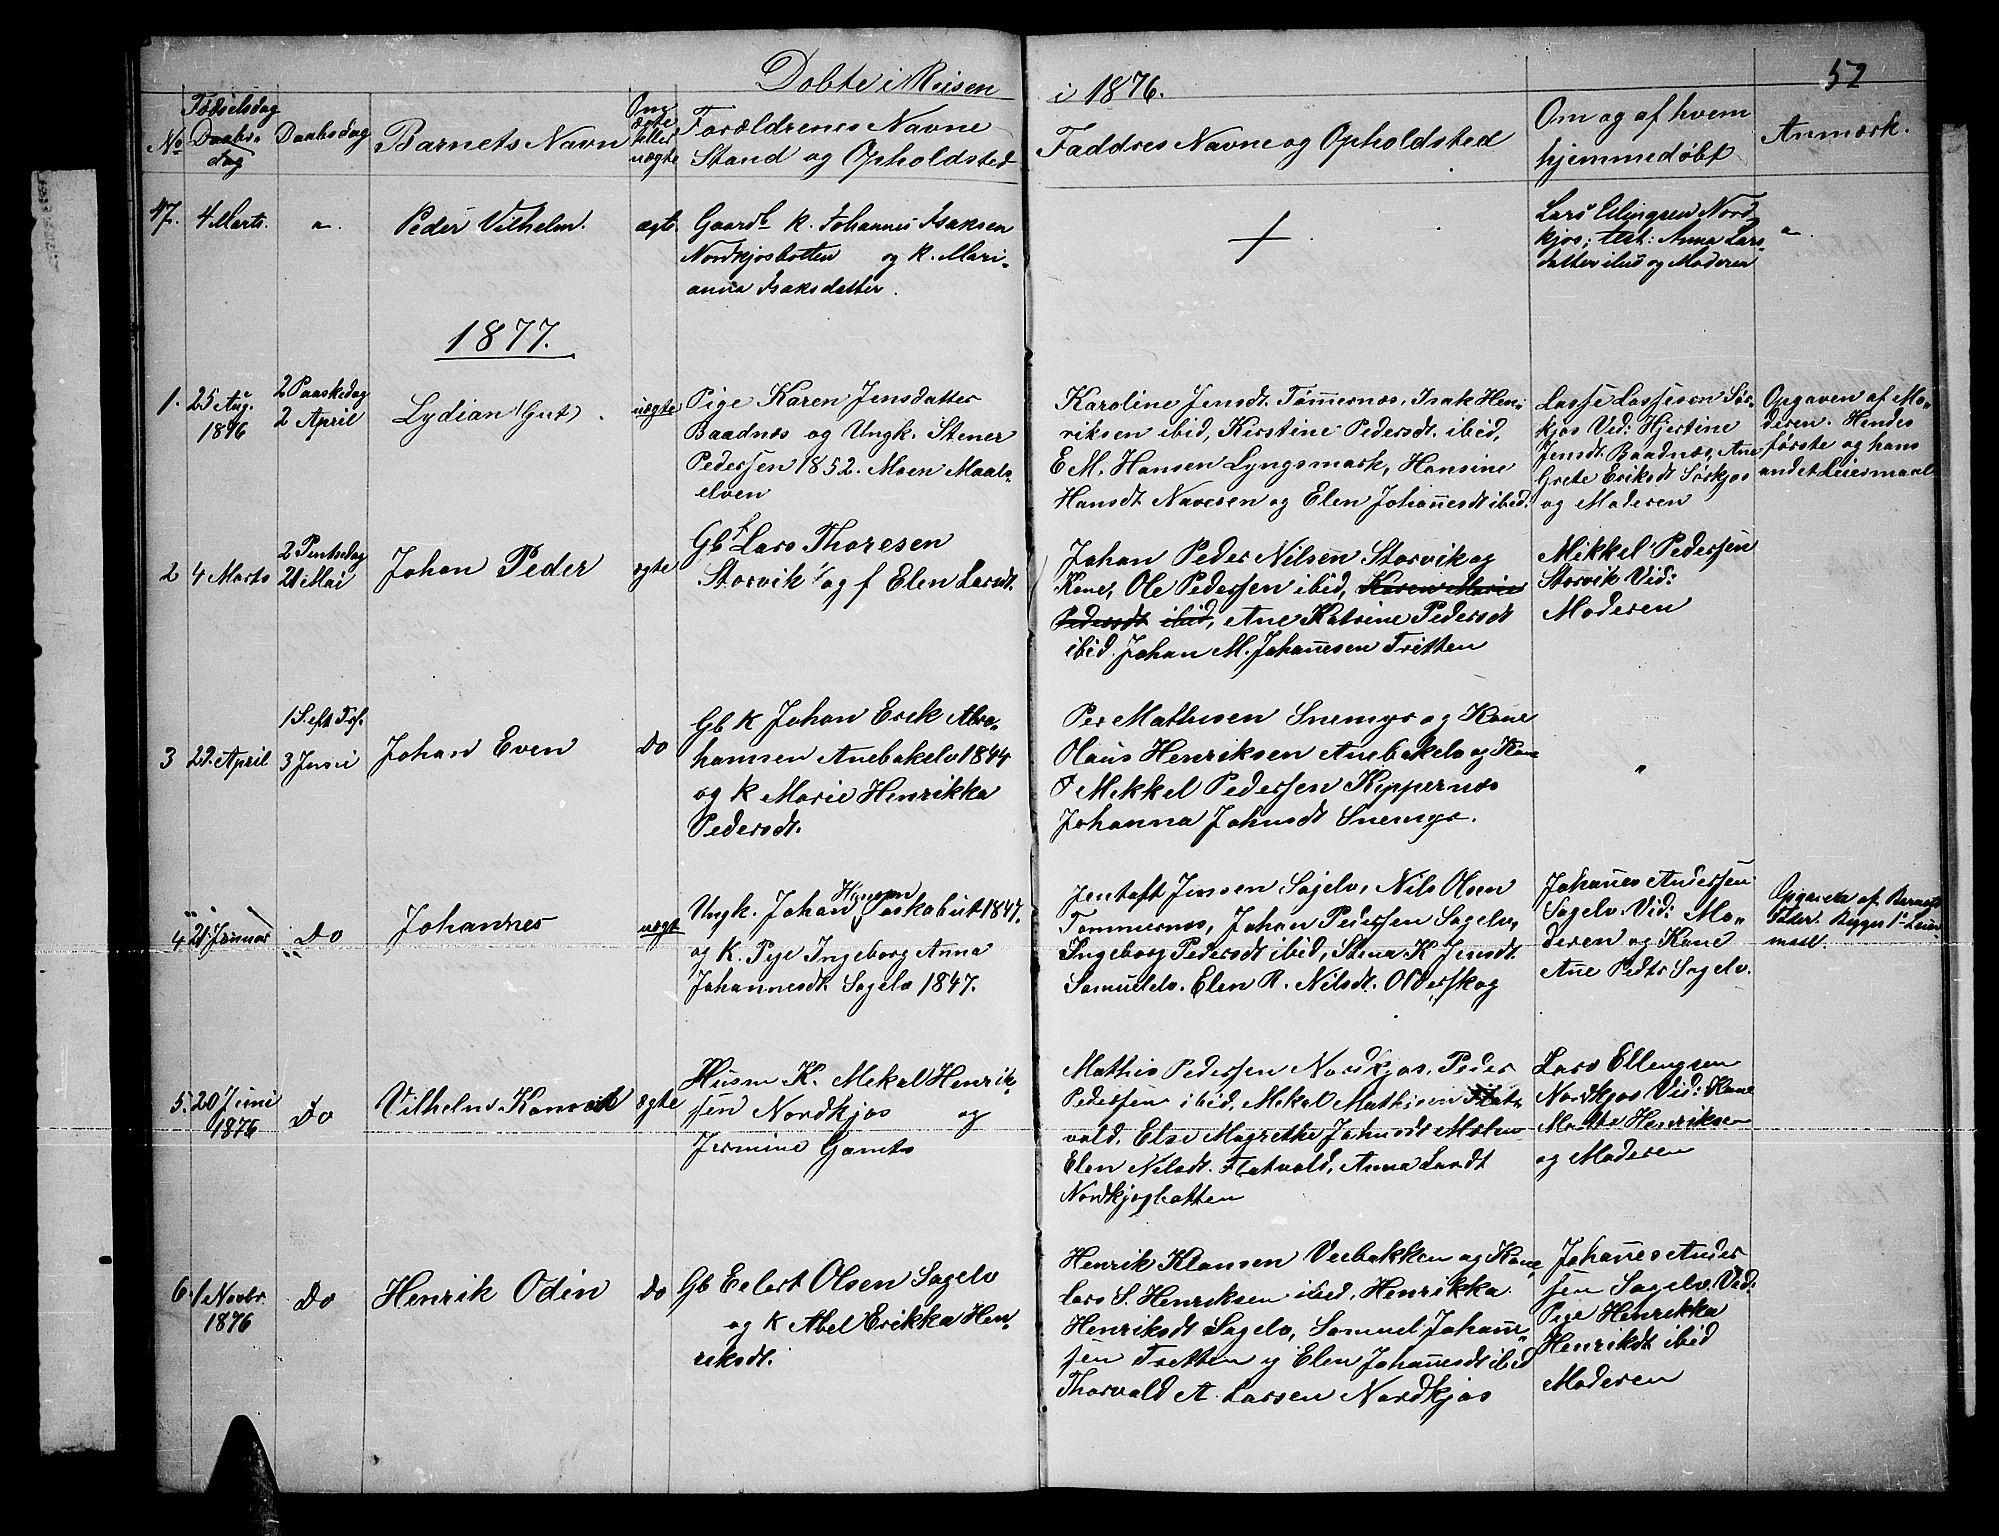 Dobte i Reisen
i 1876.
52
No
Fødselsdag
Daabs-
dag
Daabsdag
Barnets Navn
Om
ægte
eller
uægte
Forældrenes Navne
Stand og Opholdsted
Faddres Navne og Opholdsted
Om og af hvem
hjemmedøbt
Anmærk.
47.
4 Marts.
"
Peder Vilhelm.
ægte
Gaardb k. Johannes Isaksen
Nordkjosbotten og k. Mari-
anna Isaksdatter.
Lars Ellingsen Nord-
kjos; test: Anna Lars-
datter ibid og Moderen
"
1877.
1.
25 Aug.
1876
2 Paaskedag
2 April
Lydian (Gut)
uægte
Pige Karen Jensdatter
Baadnæs og Ungk. Stener
Pederssen 1852. Moen Maals-
elven
Karoline Jensdt. Tømmernæs, Isak Hen-
riksen ibid, Kirstine Pedersdt. ibid,
E M. Hansen Lyngsmark, Hansine
Hansdt Naveren og Elen Johannesdt ibid.
Lasse Lassesen Sør-
kjos Vid: Hjertine
Jensdt. Baadnæs, Ane
Grete Eriksdt Sørkjos
og Moderen
Opgaven af Mo-
deren. Hendes
første og hans
andet Leiermaal
2
4 Marts
2 Pintsedag
21 Mai
Johan Peder
ægte
Gb f Lars Thoresen
Storvik og f Elen Larsdt.
Johan Peder Nilsen Storvik og
Kone, Ole Pederssen ibid, Karen Marie
Pedersdt ibid, Ane Katrine Pedersdt
ibid. Johan M. Johannesen Tritten
Mikkel Pederssen
Storvik Vid:
Moderen
3
22 April
1 S. eft Trf.
3 Juni
Johan Even
Do
Gb k Johan Erik Abra-
hamsen Anebakelv 1844
og k Marie Henrikka
Pedersdt.
Per Mathisen Snemyr og Kone
Olaus Henriksen Anebakelv og Kone
Mekkel Pederssen Kippernæs
Johanna Johnsdt Snemyr.
"
4
21 Januar
Do
Johannes
uægt
Ungk. Johan Hansen 1847.
og K. Pige Ingeborg Anna
Johannesdt. Sagelv 1847.
Jentoft Jensen Sagelv, Nils Olsen
Tømmernæs, Johan Pederssen Sagelv,
Ingeborg Pedersdt ibid, Stena K Jensdt.
Samuelelv. Elen R. Nilsdt. Olderskog
Johannes Anderssen
Sagelv. Vid: Mo-
deren og Kone
Ane Pedts Sagelv.
Opgaven af Barnets
Fader. Begges 1ste Leier-
maal.
5.
20 Juni
1876
Do
Vilhelm Konrad
ægte
Husm K. Mekal Henrik-
sen Nordkjos og
Jermine Gamts
Mathis Pederssen Nordkjos, Peder
Pederssen ibid, Mekal Mathisen Flat-
vold, Else Magrethe Johnsdt Malen
Elen Nilsdt. Flatvold, Anna Larsdt
Nordkjosbotten
Lars Ellingsen
Nordkjos Vid: Kone
Marthe Henriksen
og Moderen
6.
1 Novbr.
1876
Do
Henrik Odin
Do
Gb Eilert Olsen Sagelv
og K Abel Erikka Hen-
riksdt.
Henrik Klausen Veebakken og Kone,
Lars S. Henriksen ibid, Henrikka
Henriksdt Sagelv, Samuel Johan-
sen Tretten og Elen Johannesdt ibid
Thorvald A. Larsen Nordkjos
Johannes Anders-
sen Sagelv. Vid:
Pige Henrikka
Henriksdt ibid
Moderen